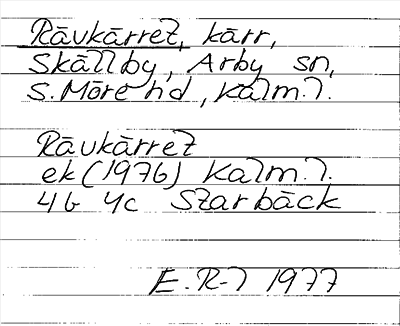 Rävkärret, kärr,
Skällby, Arby sn,
S. Möre hd, Kalm. l.
Rävkärret
ek (1976) Kalm. l.
4G 4c Starbäck
E. R-l 1977